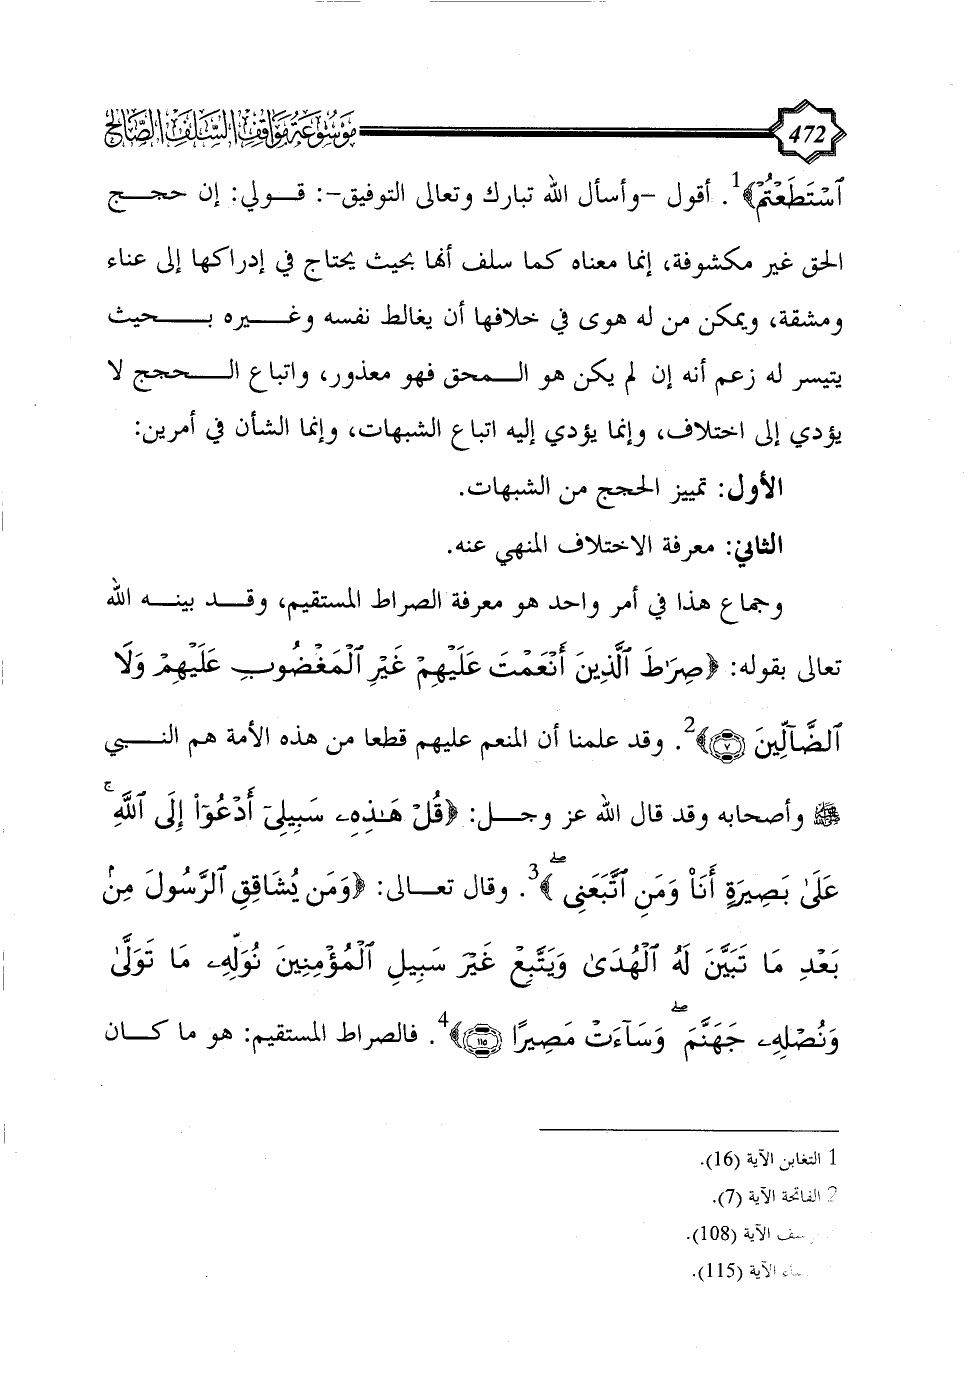 موسوعة مواقف السلف الصالح
472
ٱسْتَطَعْتُمْ﴾1. أقول -وأسأل الله تبارك وتعالى التوفيق-: قـــولي: إن حجـــج
الحق غير مكشوفة، إنما معناه كما سلف أنها بحيث يحتاج في إدراكها إلى عناء
ومشقة، ويمكن من له هوى في خلافها أن يغالط نفسه وغـــيره بـــحيث
يتيسر له زعم أنه إن لم يكن هو الـــمحق فهو معذور، واتباع الـــحجج لا
يؤدي إلى اختلاف، وإنما يؤدي إليه اتباع الشبهات، وإنما الشأن في أمرين:
الأول: تمييز الحجج من الشبهات.
الثاني: معرفة الاختلاف المنهي عنه.
وجماع هذا في أمر واحد هو معرفة الصراط المستقيم، وقـــد بينـــه الله
تعالى بقوله: ﴿صِرَٰطَ ٱلَّذِينَ أَنْعَمْتَ عَلَيْهِمْ غَيْرِ ٱلْمَغْضُوبِ عَلَيْهِمْ وَلَا
ٱلضَّآلِّينَ ٧﴾2. وقد علمنا أن المنعم عليهم قطعا من هذه الأمة هم النـــبي
ﷺ وأصحابه وقد قال الله عز وجـــل: ﴿قُلْ هَٰذِهِۦ سَبِيلِىٓ أَدْعُوٓا۟ إِلَى ٱللَّهِ ۚ
عَلَىٰ بَصِيرَةٍ أَنَا۠ وَمَنِ ٱتَّبَعَنِى ۖ﴾3. وقال تعـــالى: ﴿وَمَن يُشَاقِقِ ٱلرَّسُولَ مِنۢ
بَعْدِ مَا تَبَيَّنَ لَهُ ٱلْهُدَىٰ وَيَتَّبِعْ غَيْرَ سَبِيلِ ٱلْمُؤْمِنِينَ نُوَلِّهِۦ مَا تَوَلَّىٰ
وَنُصْلِهِۦ جَهَنَّمَ ۖ وَسَآءَتْ مَصِيرًا ١١٥﴾4. فالصراط المستقيم: هو ما كـــان
1 التغابن الآية (16).
2 الفاتحة الآية (7).
الآية (108).
الآية (115).